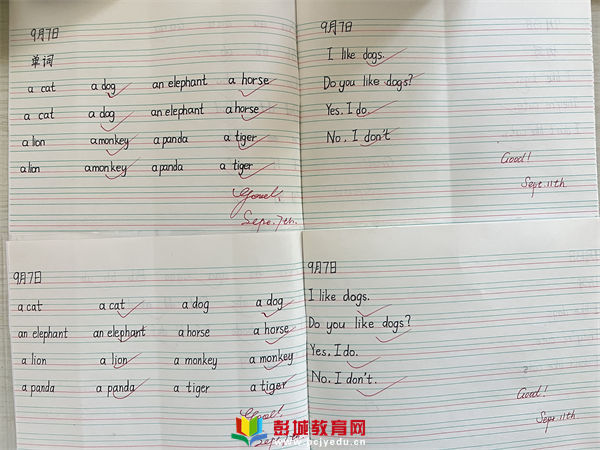 9月7日
单词
a cat a dog an elephant a horse
a cat a dog an elephant a horse
a lion a monkey a panda a tiger
a lion a monkey a panda a tiger
Good!
Sept.7th.
9月7日
I like dogs.
Do you like dogs?
Yes, I do.
No, I don't
Good!
Sept.11th
9月7日
a cat a cat a dog a dog
an elephant an elephant a horse a horse
a lion a lion a monkey a monkey
a panda a panda a tiger a tiger
Good!
9月7日
I like dogs.
Do you like dogs?
Yes, I do.
No, I don't.
Good!
Sept.11th
彭城教育网
www.pcjyedu.cn